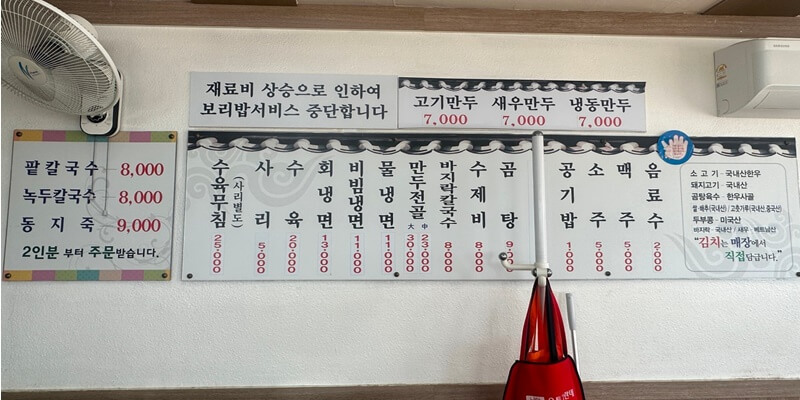 재료비 상승으로 인하여
보리밥서비스 중단합니다
고기만두 7,000
새우만두 7,000
냉동만두 7,000
팥칼국수 8,000
녹두칼국수 8,000
동지죽 9,000
2인분 부터 주문받습니다.
수육무침 (사리별도) 25,000
사리 5,000
수육
회냉면 13,000
비빔냉면 11,000
물냉면 11,000
만두전골 大 30,000 中 23,000
바지락칼국수 8,000
수제비 8,000
곰탕
공기밥 1,000
소주 5,000
맥주 5,000
음료수 2,000
소고기 - 국내산한우
돼지고기 - 국내산
곰탕육수 - 한우사골
쌀·배추(국내산) / 고춧가루(국내산,중국산)
두부콩 - 미국산
바지락 - 국내산 / 새우 - 베트남산
"김치는 매장에서
직접담급니다."
SAMSUNG